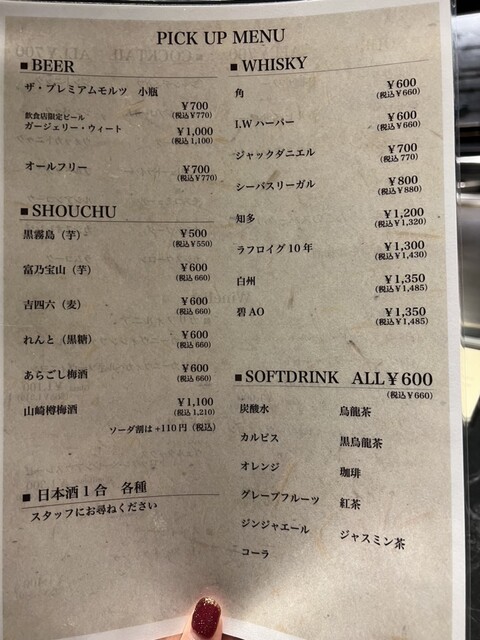 PICK UP MENU
■BEER
ザ・プレミアムモルツ　小瓶
¥700
(税込¥770)
飲食店限定ビール
ガージェリー・ウィート
¥1,000
(税込1,100)
オールフリー
¥700
(税込¥770)
■SHOUCHU
黒霧島（芋） ¥500
(税込¥550)
富乃宝山（芋） ¥600
(税込660)
吉四六（麦） ¥600
(税込660)
れんと（黒糖） ¥600
(税込660)
あらごし梅酒 ¥600
(税込660)
山崎樽梅酒 ¥1,100
(税込1,210)
ソーダ割は+110円（税込）
■日本酒1合　各種
スタッフにお尋ねください
■WHISKY
角 ¥600
(税込¥660)
I.Wハーパー ¥600
(税込¥660)
ジャックダニエル ¥700
(税込770)
シーバスリーガル ¥800
(税込¥880)
知多 ¥1,200
(税込¥1,320)
ラフロイグ10年 ¥1,300
(税込¥1,430)
白州 ¥1,350
(税込¥1,485)
碧AO ¥1,350
(税込¥1,485)
■SOFTDRINK　ALL¥600
(税込¥660)
炭酸水
カルピス
オレンジ
グレープフルーツ
ジンジャエール
コーラ
烏龍茶
黒烏龍茶
珈琲
紅茶
ジャスミン茶